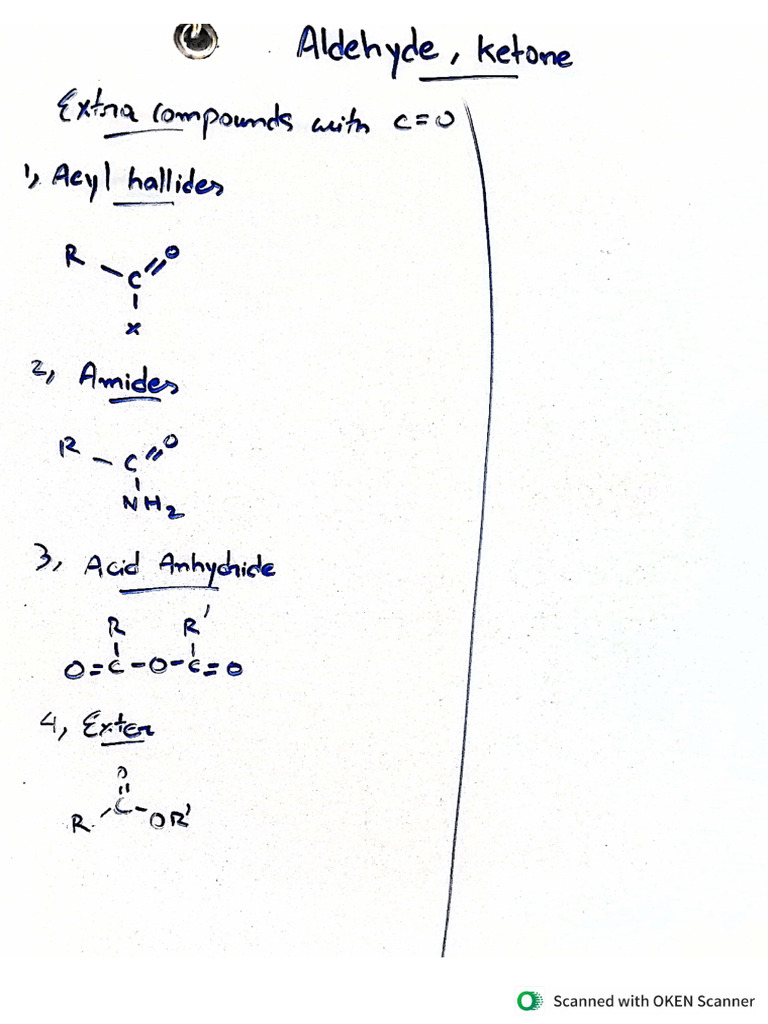 Aldehyde, Ketone
Extra compounds with C=O
1, Acyl hallides
R - C = O
X
2, Amides
R - C = O
NH2
3, Acid Anhydride
R R'
O=C-O-C=O
4, Exter
O
R - C - OR'
Scanned with OKEN Scanner